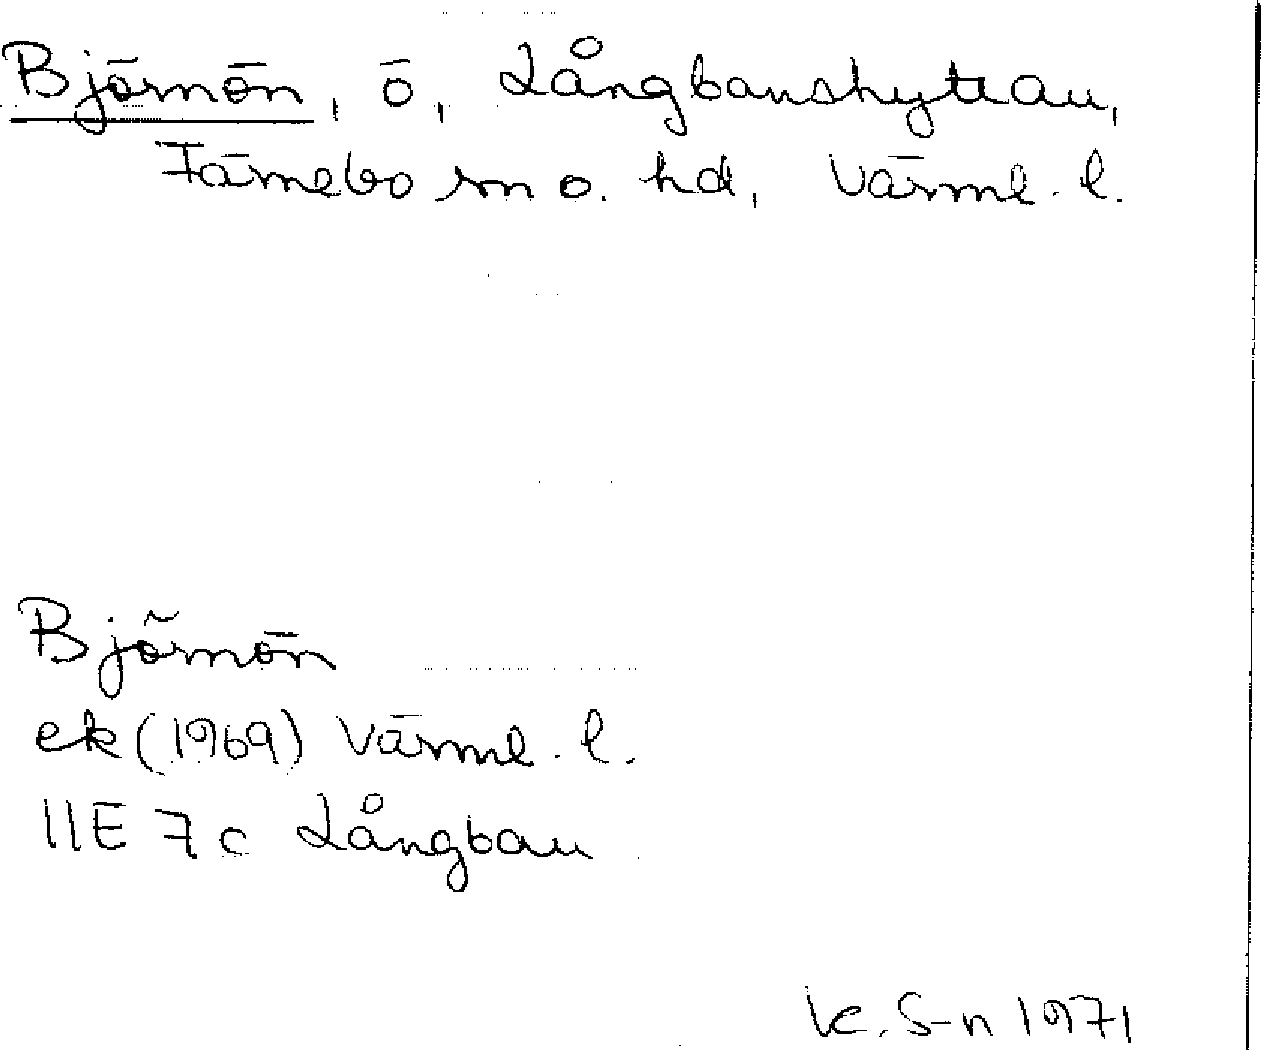 Björnön, ö, Långbanshyttan,
Färnebo sn o. hd, Värml. l.
Björnön
ek (1969) Värml. l.
11E 7c Långban
K. S-n 1971